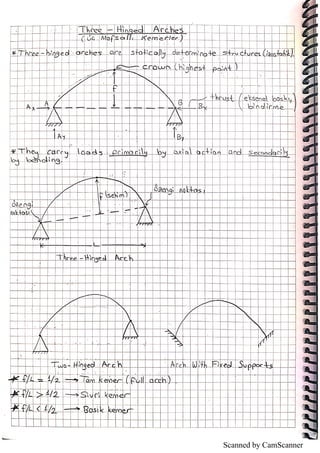 Three - Hinged Arches
(Üç Mafsallı Kemerler)
* Three-hinged arches are statically determinate structures (izostatik).
crown (highest point)
f
Ax
A
B
Bx
thrust (eksenel basınç,
bindirme)
Ay
By
* They carry loads primarily by axial action and secondarily
by bending.
f (sehim)
Üzengi noktası
Üzengi
noktası
L
Three - Hinged Arch
Two-Hinged Arch
Arch With Fixed Supports
* f/L = 1/2 → Tam kemer (full arch)
* f/L > 1/2 → Sivri kemer
* f/L < 1/2 → Basık kemer
Scanned by CamScanner